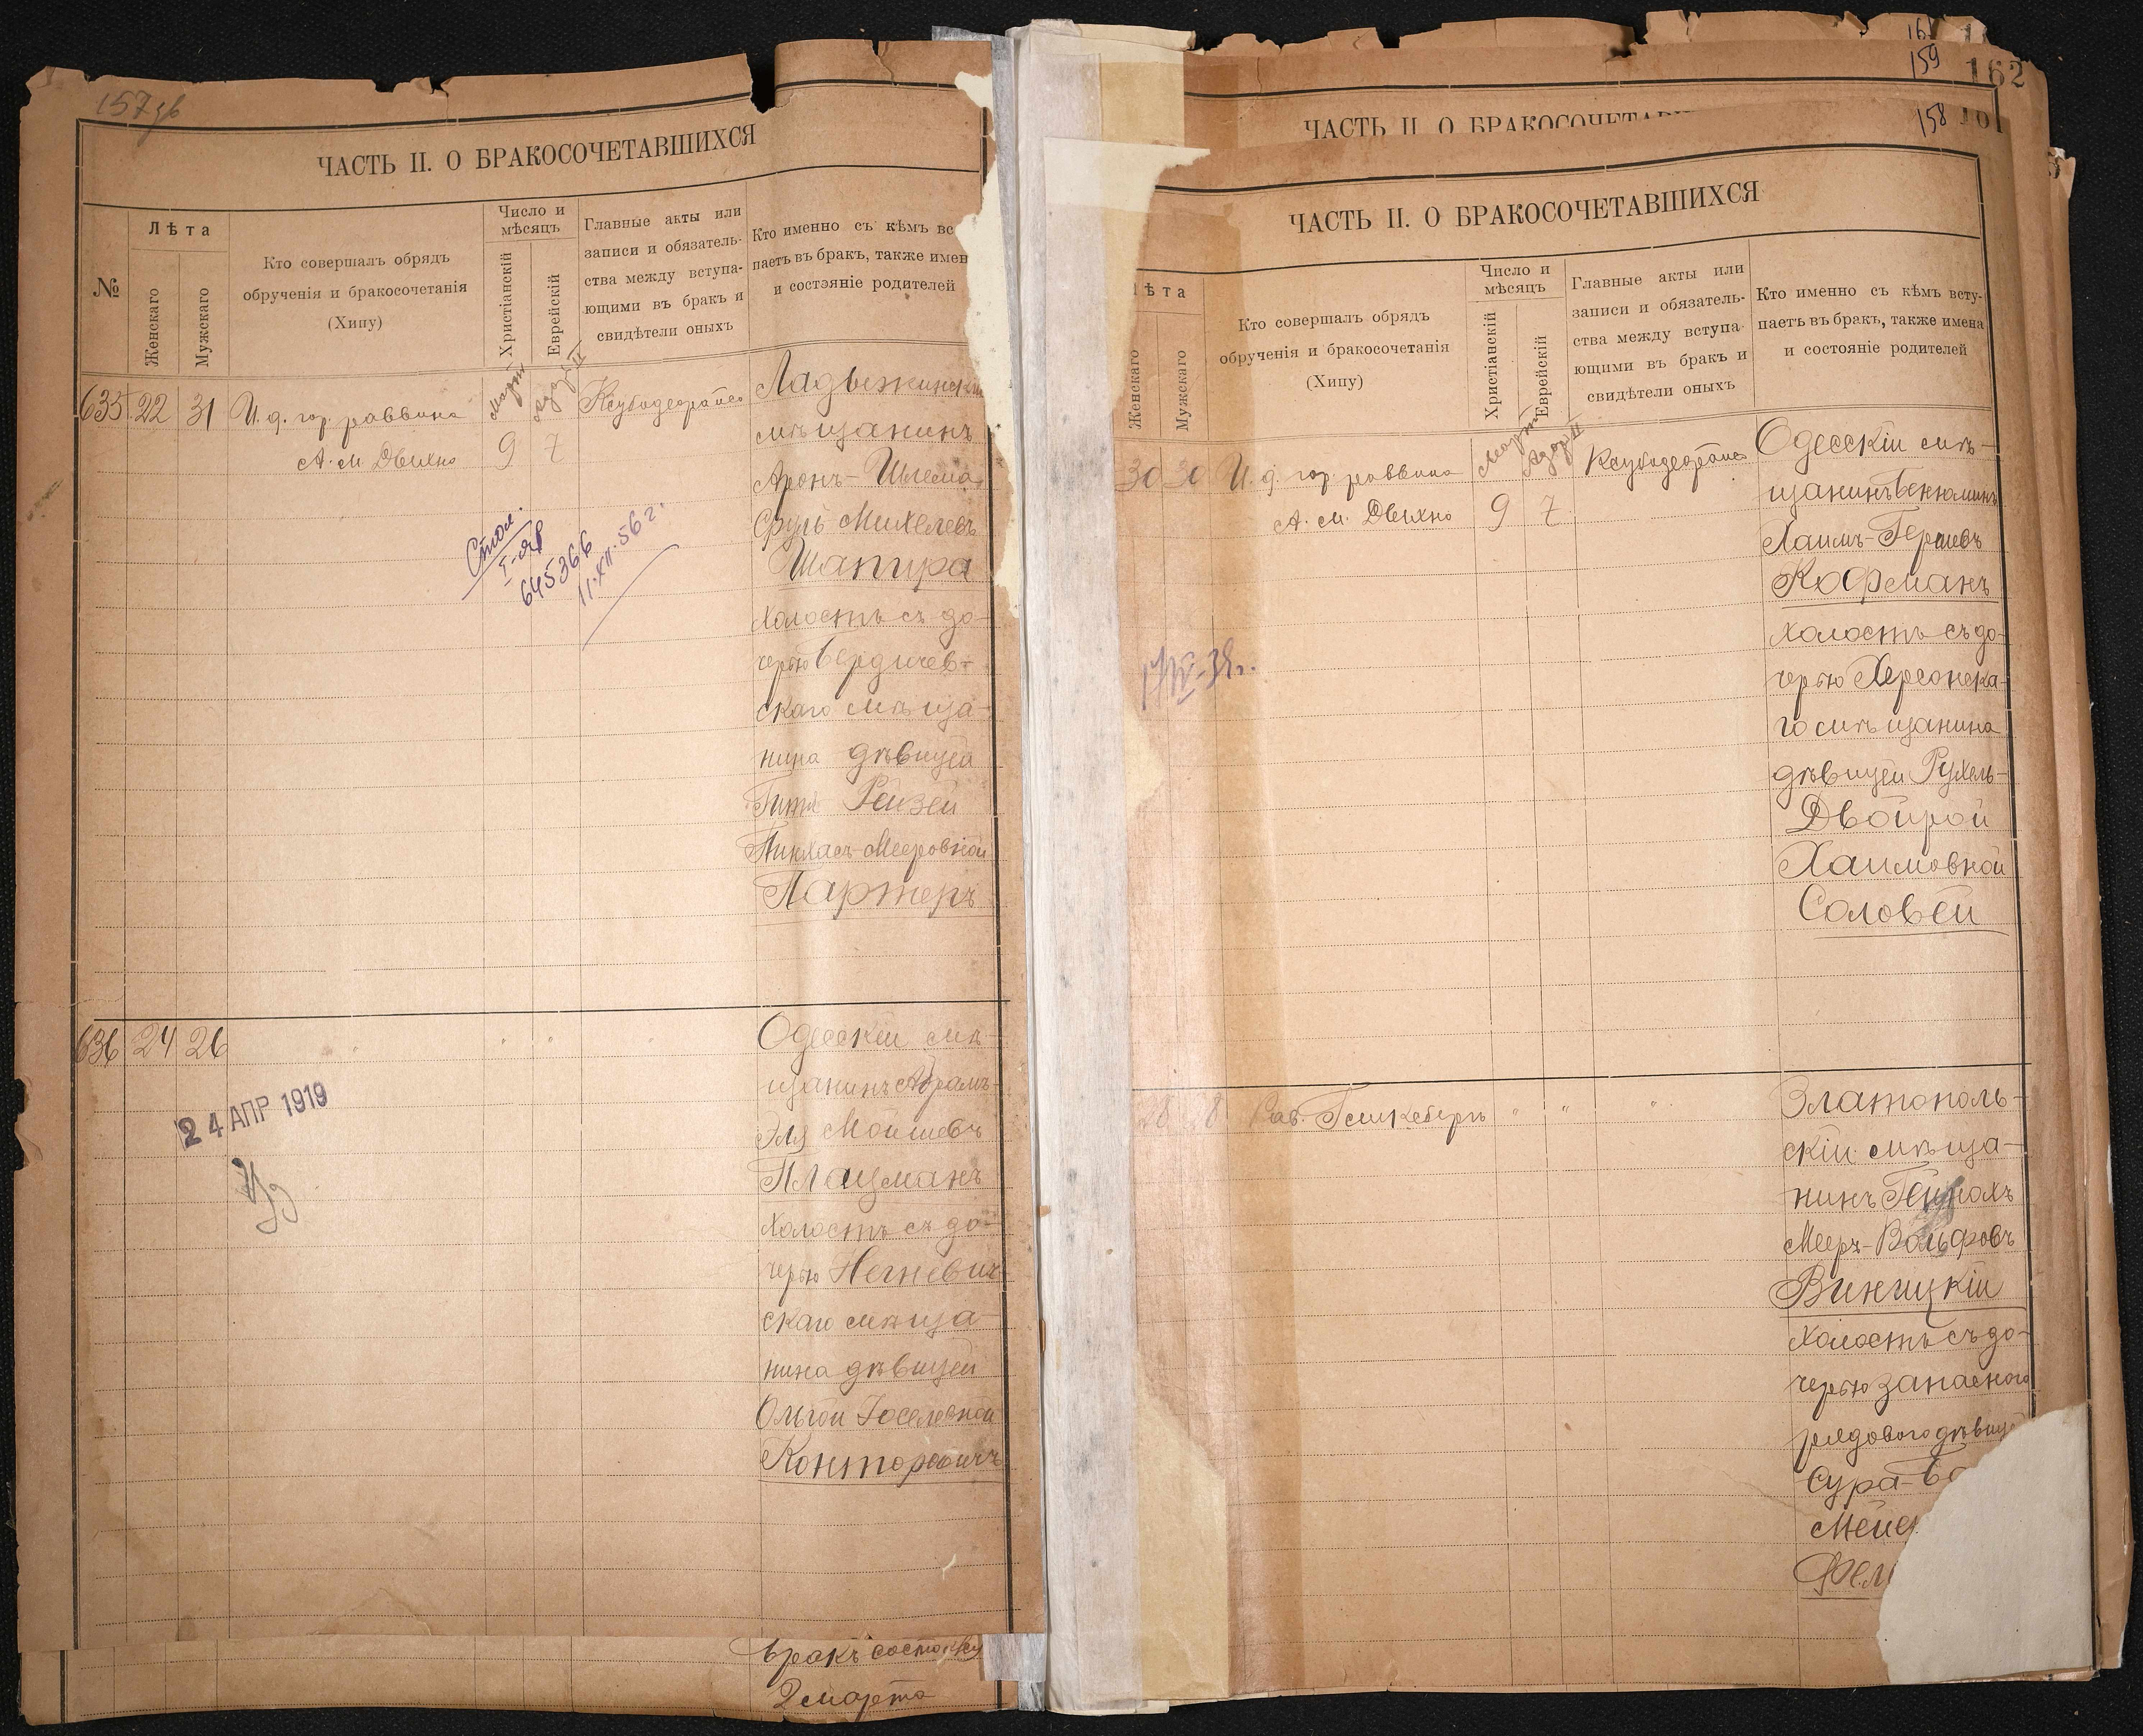 157 зв
ЧАСТЬ II. О БРАКОСОЧЕТАВШИХСЯ
№
Лѣта
Женскаго
Мужскаго
Кто совершалъ обрядъ
обрученія и бракосочетанія
(Хипу)
Число и
мѣсяцъ
Христіанскій
Еврейскій
Главные акты или
записи и обязатель-
ства между вступа-
ющими въ бракъ и
свидѣтели оныхъ
Кто именно съ кѣмъ вс
паетъ въ бракъ, также имен
и состояніе родителей
635 22 31 И. д. гор. раввина
А. М. Дыхно
Мартъ
9
Адаръ II
7
Ладыжинскі
мѣщанинъ
Аронъ-Шлема
Сруль Михелевъ
Шапира
холостъ съ до-
черью Бердичев-
скаго мѣща-
нина дѣвицей
Рейзей
Пинхасъ-Мееровной
Партеръ
Стол.
645366
11.XII.56 г.
636 24 26 " " " "
Одесскій мѣ-
щанинъ Абрамъ-
Эля Мошевъ
Плацманъ
холостъ съ до-
черью Негневич-
скаго мѣща-
нина дѣвицей
Ольгой Іоселевной
Канторовичъ
24 АПР 1919
Бракъ состоялся
2 марта
162
159
ЧАСТЬ II. О БРАКОСОЧЕТАВ
158
ЧАСТЬ II. О БРАКОСОЧЕТАВШИХСЯ
ѣта
Женскаго
Мужскаго
Кто совершалъ обрядъ
обрученія и бракосочетанія
(Хипу)
Число и
мѣсяцъ
Христіанскій
Еврейскій
Главные акты или
записи и обязатель-
ства между вступа-
ющими въ бракъ и
свидѣтели оныхъ
Кто именно съ кѣмъ всту-
паетъ въ бракъ, также имена
и состояніе родителей
30 30 И. д. гор. раввина
А. М. Дыхно
Мартъ
9
Адаръ II
7
Одесскій мѣ-
щанинъ Беньюминъ
Хаимъ-Гершевъ
Кофманъ
холостъ съ до-
черью Херсонска-
го мѣщанина
дѣвицей Рухель-
Двойрой
Хаимовной
Соловей
28 Рав. Гсикебергъ " " "
Златополь-
скій мѣща-
нинъ Генохъ
Мееръ-Вольфовъ
Виницкій
холостъ съ до-
черью запасного
рядового дѣвиц
Сура-Ба
Мее
Фел